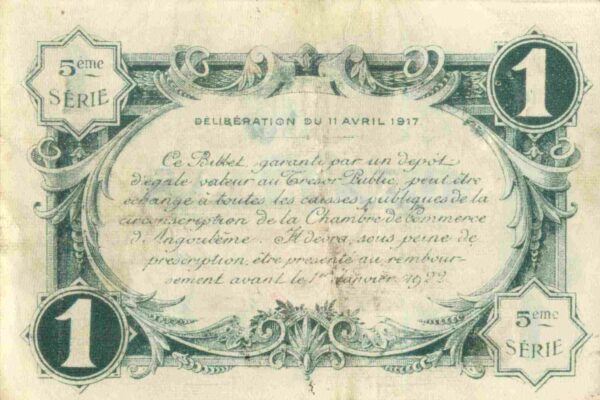 5ème
SÉRIE
1
DÉLIBÉRATION DU 11 AVRIL 1917.
Ce Billet, garanti par un dépôt
d'égale valeur au Trésor Public, peut être
échangé à toutes les caisses publiques de la
circonscription de la Chambre de Commerce
d'Angoulême. Il devra, sous peine de
prescription, être présenté au rembour-
sement avant le 1er Janvier 1922.
1
5ème
SÉRIE